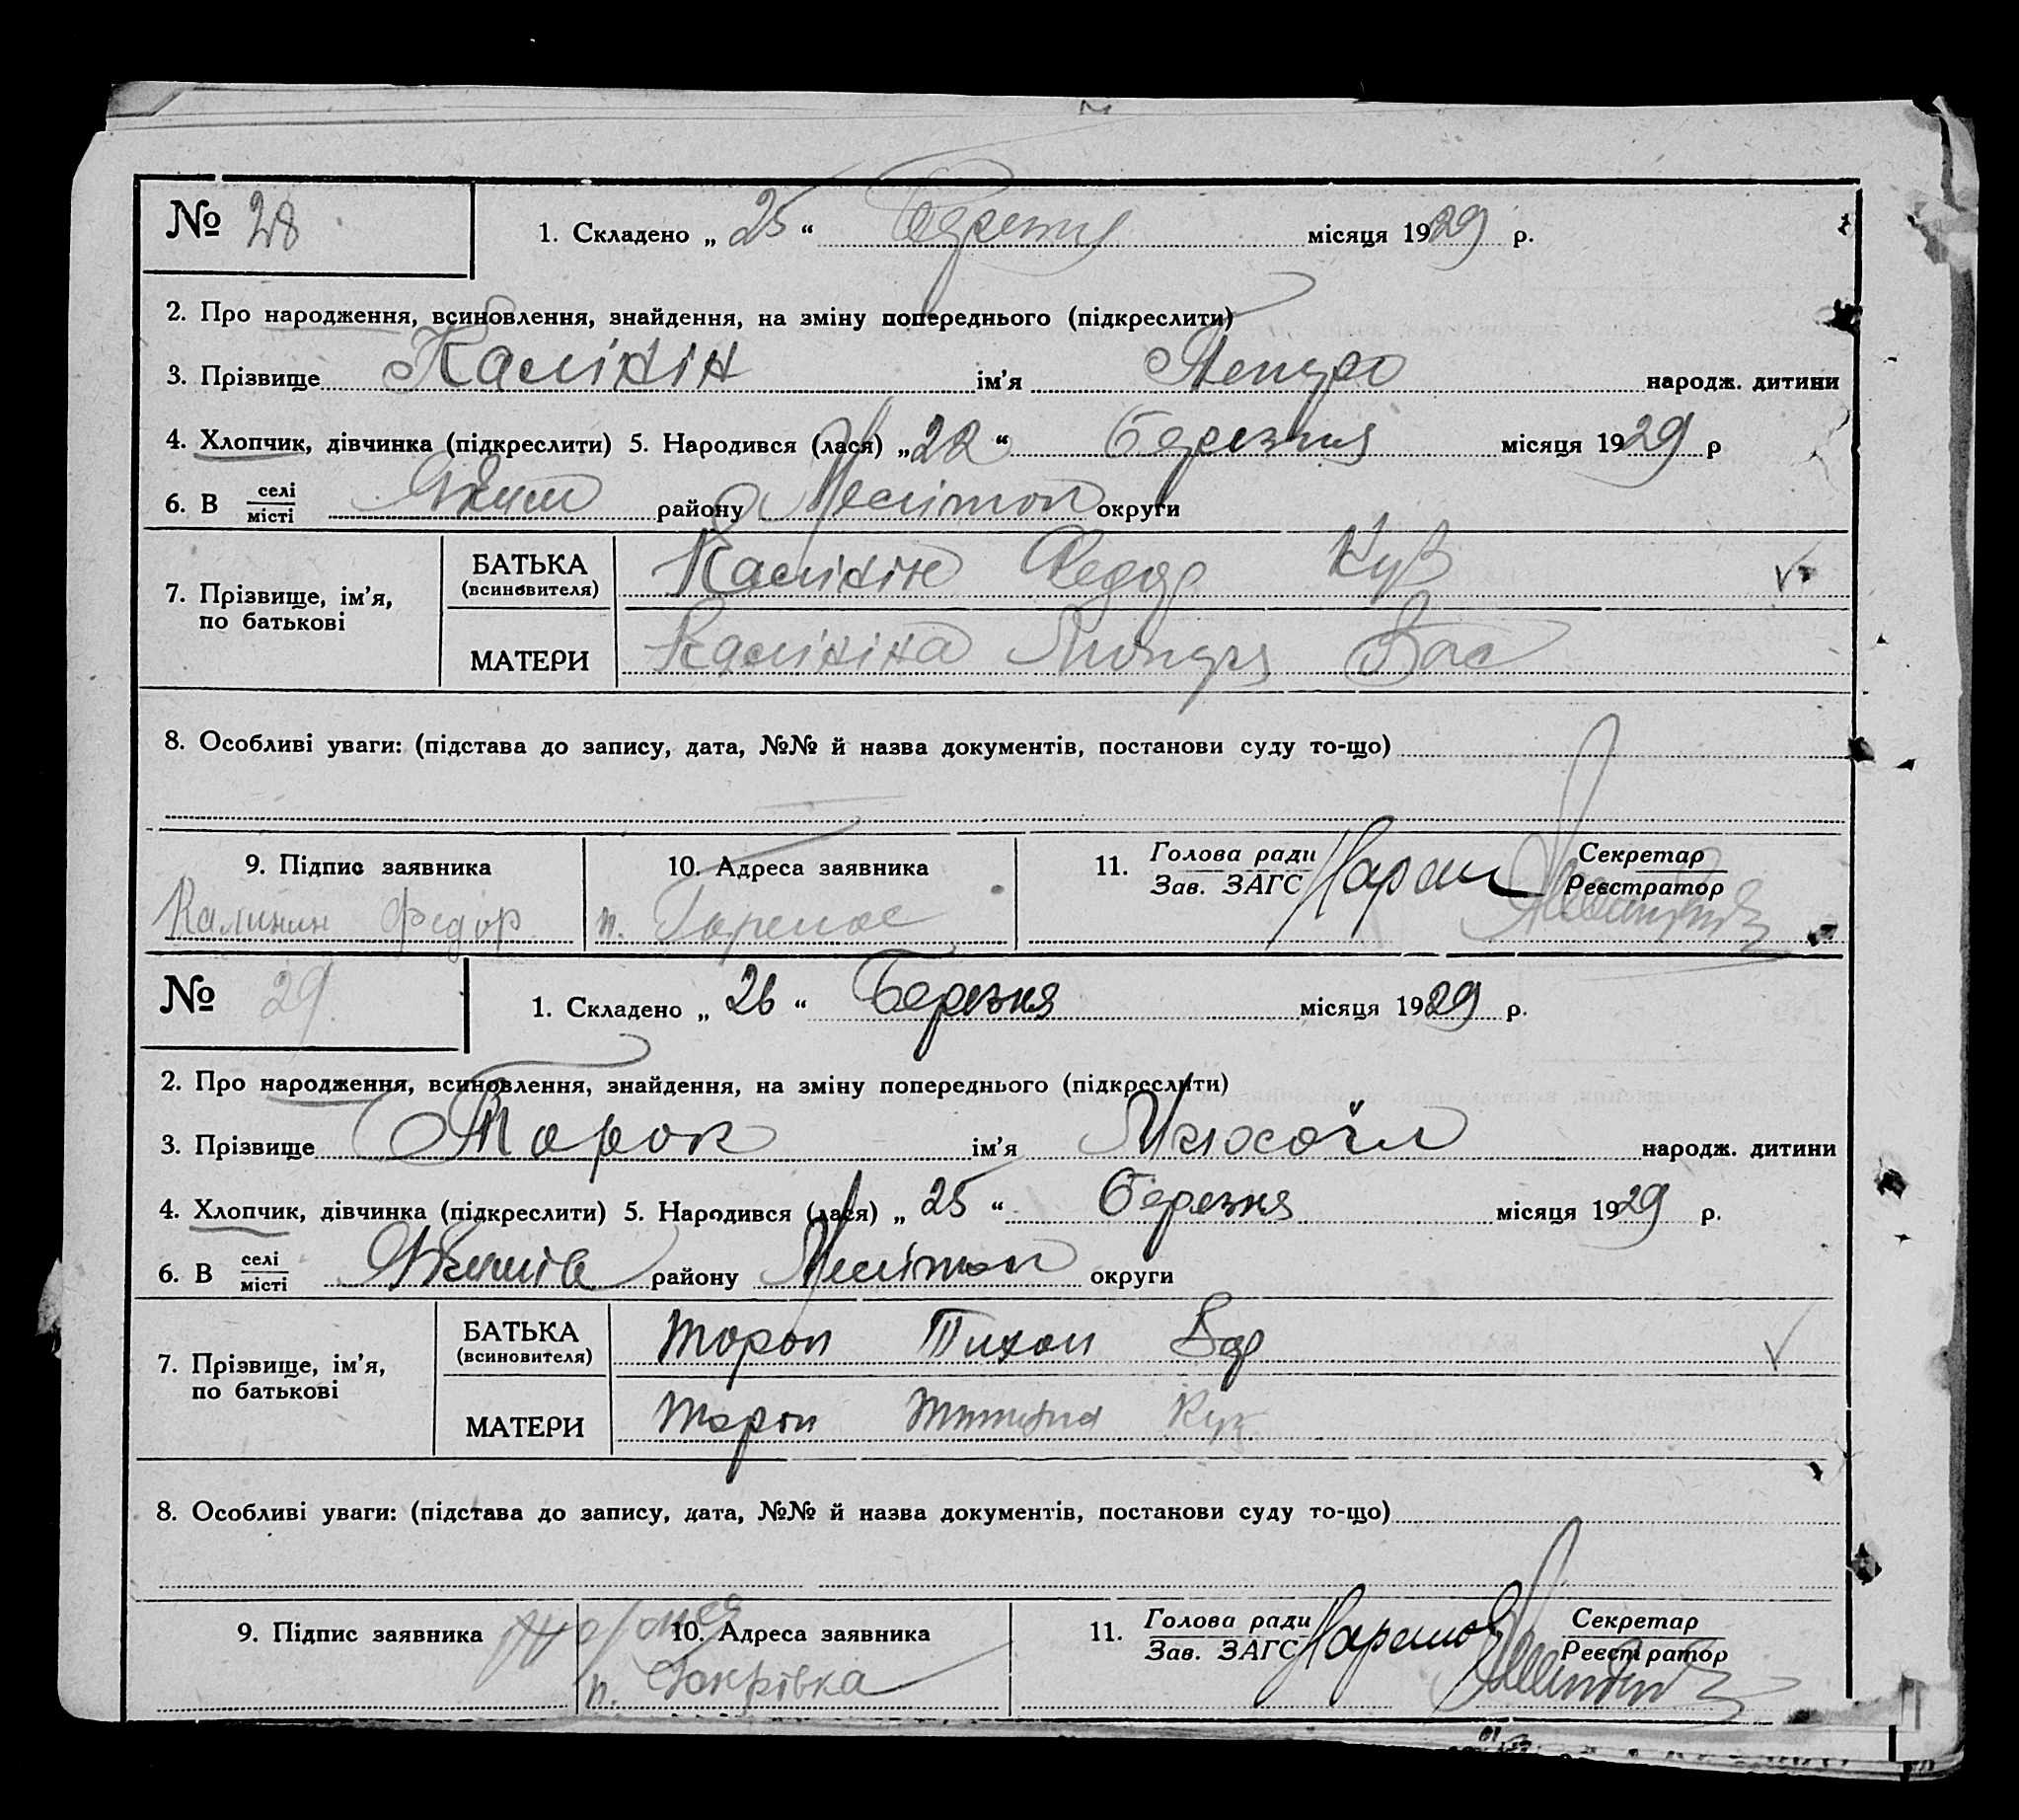 № 28
1. Складено „ 25 “ Березня місяця 1929 р.
2. Про народження, всиновлення, знайдення, на зміну попереднього (підкреслити)
3. Прізвище Калінін ім'я народж. дитини
4. Хлопчик, дівчинка (підкреслити) 5. Народився (лася) „ 22 “ березня місяця 1929 р
6. В селі
місті району Мелітоп округи
7. Прізвище, ім'я,
по батькові
БАТЬКА
(всиновителя)
Калінін Федор Куз
МАТЕРИ
Калініна Вас
8. Особливі уваги: (підстава до запису, дата, №№ й назва документів, постанови суду то-що)
9. Підпис заявника
Калинин Федор
10. Адреса заявника
п.
11. Голова ради
Зав. ЗАГС
Секретар
Реєстратор
№ 29
1. Складено „ 26 “ Березня місяця 1929 р.
2. Про народження, всиновлення, знайдення, на зміну попереднього (підкреслити)
3. Прізвище ім'я народж. дитини
4. Хлопчик, дівчинка (підкреслити) 5. Народився (лася) „ 25 “ березня місяця 1929 р.
6. В селі
місті району Мелітоп округи
7. Прізвище, ім'я,
по батькові
БАТЬКА
(всиновителя)
Тороп Тихон
МАТЕРИ
Тороп Куз
8. Особливі уваги: (підстава до запису, дата, №№ й назва документів, постанови суду то-що)
9. Підпис заявника
10. Адреса заявника
п.
11. Голова ради
Зав. ЗАГС
Секретар
Реєстратор